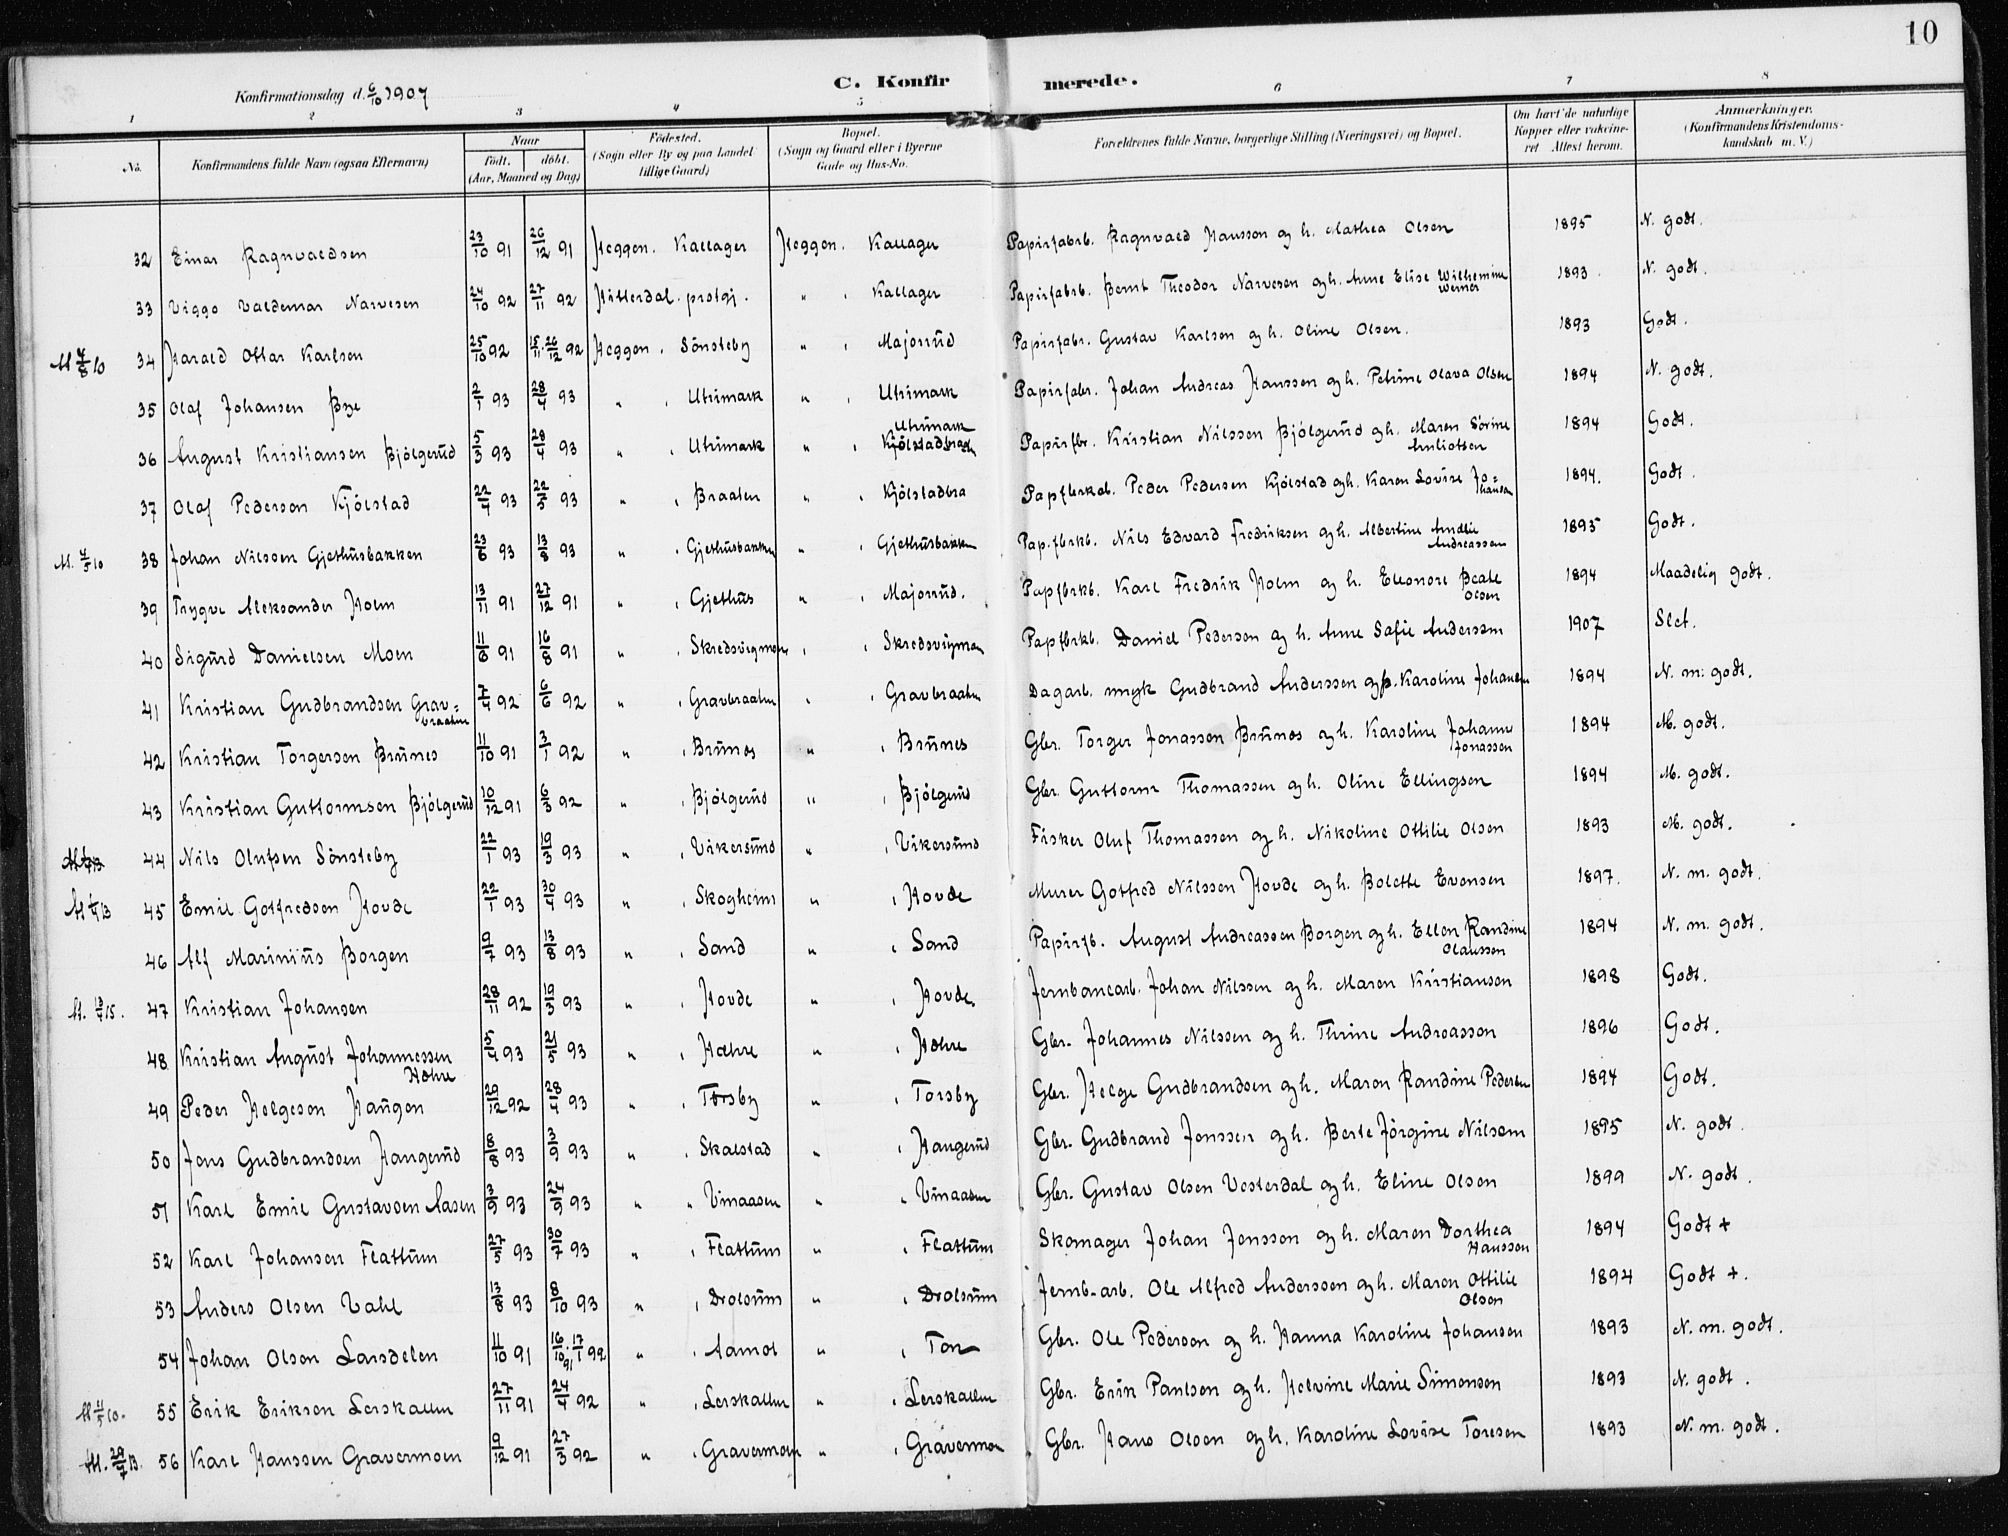 10
C. Konfirmerede.
Konfirmationsdag d. 6/10 1907
1 2 3 4 5 6 7 8
No. Konfirmandens fulde Navn (ogsaa Efternavn) Naar født. døbt. (Aar, Maaned og Dag) Fødested. (Sogn eller By og paa Landet tillige Gaard) Bopæl. (Sogn og Gaard eller i Byerne Gade og Hus-No. Forældrenes fulde Navne, borgerlige Stilling (Næringsvei) og Bopæl. Om havt de naturlige Kopper eller vakcineret Attest herom. Anmærkninger. (Konfirmandens Kristendomskundskab m. V.)
32 Einar Ragnvaldsen 23/10 91 26/12 91 Heggen. Kallager Heggen. Kallager Papirfabrb. Ragnvald Hansson og h. Mathea Olsen 1895 N. godt.
33 Viggo Valdemar Narvesen 24/10 92 27/11 92 Hitterdal. prstgj. " . Kallager Papirfabrb. Bernt Theodor Narvesen og h. Anne Elise Wilhemine Werner 1893 N. godt.
M 4/8 10 34 Harald Ottar Karlsen 25/10 92 15/11. 26/12 92 Heggen. Sönsteby " . Majorüd Papirfabr. Gustav Karlson og h. Oline Olsen. 1893 Godt.
35 Olaf Johansen Bye 2/1 93 28/4 93 " . Utsimark " . Utsimark Papirfabr. Johan Andreas Hanssen og h. Petrine Olava Olsen 1894 N. godt.
36 August Kristiansen Bjölgerüd 5/3 93 28/4 93 " . Utsimark " . Utsimark Papirfbr. Kristian Nilssen Bjölgerüd og h. Maren Sörine 1894 Godt.
37 Olaf Pederson Kjölstad 22/4 93 22/5 93 " . Braaten " . Kjölstadbra Papfbrkab. Peder Pedersen Kjölstad og h. Karen Lovise Johansen 1894. Godt.
M. 4/5 10 38 Johan Nilssen Gjethüsbakken 23/6 93 13/8 93 " . Gjethüsbakken " . Gjethüsbakken Pap.fbrkb. Nils Edvard Fredriksen og h. Albertine Amalie Andreassen 1895 Godt.
39 Trygve Aleksander Holm 13/11 91 27/12 91 " . Gjethüs " . Majorüd. Papfbrkb. Karl Fredrik Holm og h. Eleonore Beate Olsen 1894 Maadelig godt.
40 Sigürd Danielsen Moen 11/6 91 16/8 91 " . Skredsvigmoen . . Skredsvigmoen Papfbrkb. Daniel Pederson og h. Anne Sofie Anderssen 1907 Slet.
41 Kristian Gudbrandsen Gravbraaten 7/4 92 6/6 92 " . Gravbraaten . . Gravbraaten Dagarb. Gudbrand Anderssen og h. Karoline Johansen 1894 N. m. godt.
42 Kristian Torgersen Brünes 11/10 91 3/1 92 " . Brünes " . Brünes Gbr. Torger Jonassen Brünes og h. Karoline Johanne Jonassen 1894 M. godt.
43 Kristian Guttormsen Bjölgerüd 10/12 91 6/3 92 " . Bjölgerüd " . Bjölgerüd Gbr. Guttorm Thomassen og h. Oline Ellingsen 1894 M. godt.
44 Nils Olufsen Sönsteby 22/1 93 19/3 93 " . Vikersünd " . Vikersünd Fisker Oluf Thomassen og h. Nikoline Ottilie Olsen 1893 M. godt.
M 1/4 13 45 Emil Gotfredsen Hovde 22/1 93 30/4 93 " . Skogheim " . Hovde Murer Gotfred Nilssen Hovde og h. Bolette Evensen 1897. N. m. godt.
46 Alf Mariniüs Borgen 9/7 93 13/8 93 " . Sand " . Sand Papirfb. August Andreassen Borgen og h. Ellen Randine Olaussen 1894 N. m. godt.
47 Kristian Johansen 28/11 92 19/3 93 " . Hovde " . Hovde. Jernbanearb. Johan Nilssen og h. Maren Kristiansen 1898 Godt.
48 Kristian August Johannessen Hæhre 5/4 93 21/5 93 " . Hæhre " . Hæhre Gbr. Johannes Nilssen og h. Thrine Andreassen 1896 Godt.
49 Peder Helgesen Haugen 29/12 92 28/4 93 " . Torsby " . Torsby Gbr. Helge Gudbrandsen og h. Maren Randine Pedersen 1894 Godt.
50 Jens Gudbrandsen Haugerüd 8/8 93 3/9 93 " . Skalstad " . Haugerüd Gbr. Gudbrand Jenssen og h. Berte Jörgine Nilsen 1895 N. godt.
51 Karl Emil Gustavsen Aasen 3/9 93 24/9 93 " " Vinaasen " " Vinaasen Gbr. Gustav Olsen Vesterdal og h. Eline Olsen 1899 N. godt.
52 Karl Johansen Flattüm 27/5 93 30/7 93 " . Flattüm " . Flattüm Skomager Johan Jenssen og h. Maren Dorthea Hanssen 1894 Godt +
53 Anders Olsen Vahl 13/8 93 8/10 93 " . Drolsüm " . Drolsüm Jernb-arb. Ole Alfred Anderssen og h. Maren Ottilie Olsen 1894 Godt +.
54 Johan Olsen Larsdelen 11/10 91 16/10 91. 17/1 92 " . Aamot " . Ton Gbr. Ole Pederson og h. Hanna Karoline Johansen 1893 N. m. godt.
M 11/5 10. 55 Erik Eriksen Lerskallen 27/11 91 24/4 92 " . Lerskallen " . Lerskallen Gbr. Erik Paulsen og h. Helvine Marie Simonsen 1893 N. godt.
M. 29/7 13. 56 Karl Hanssen Gravermoen 9/12 91 27/3 92 " . Gravermoen " . Gravermoen Gbr. Hans Olsen og h. Karoline Lovise Toresen 1893 N. m. godt.